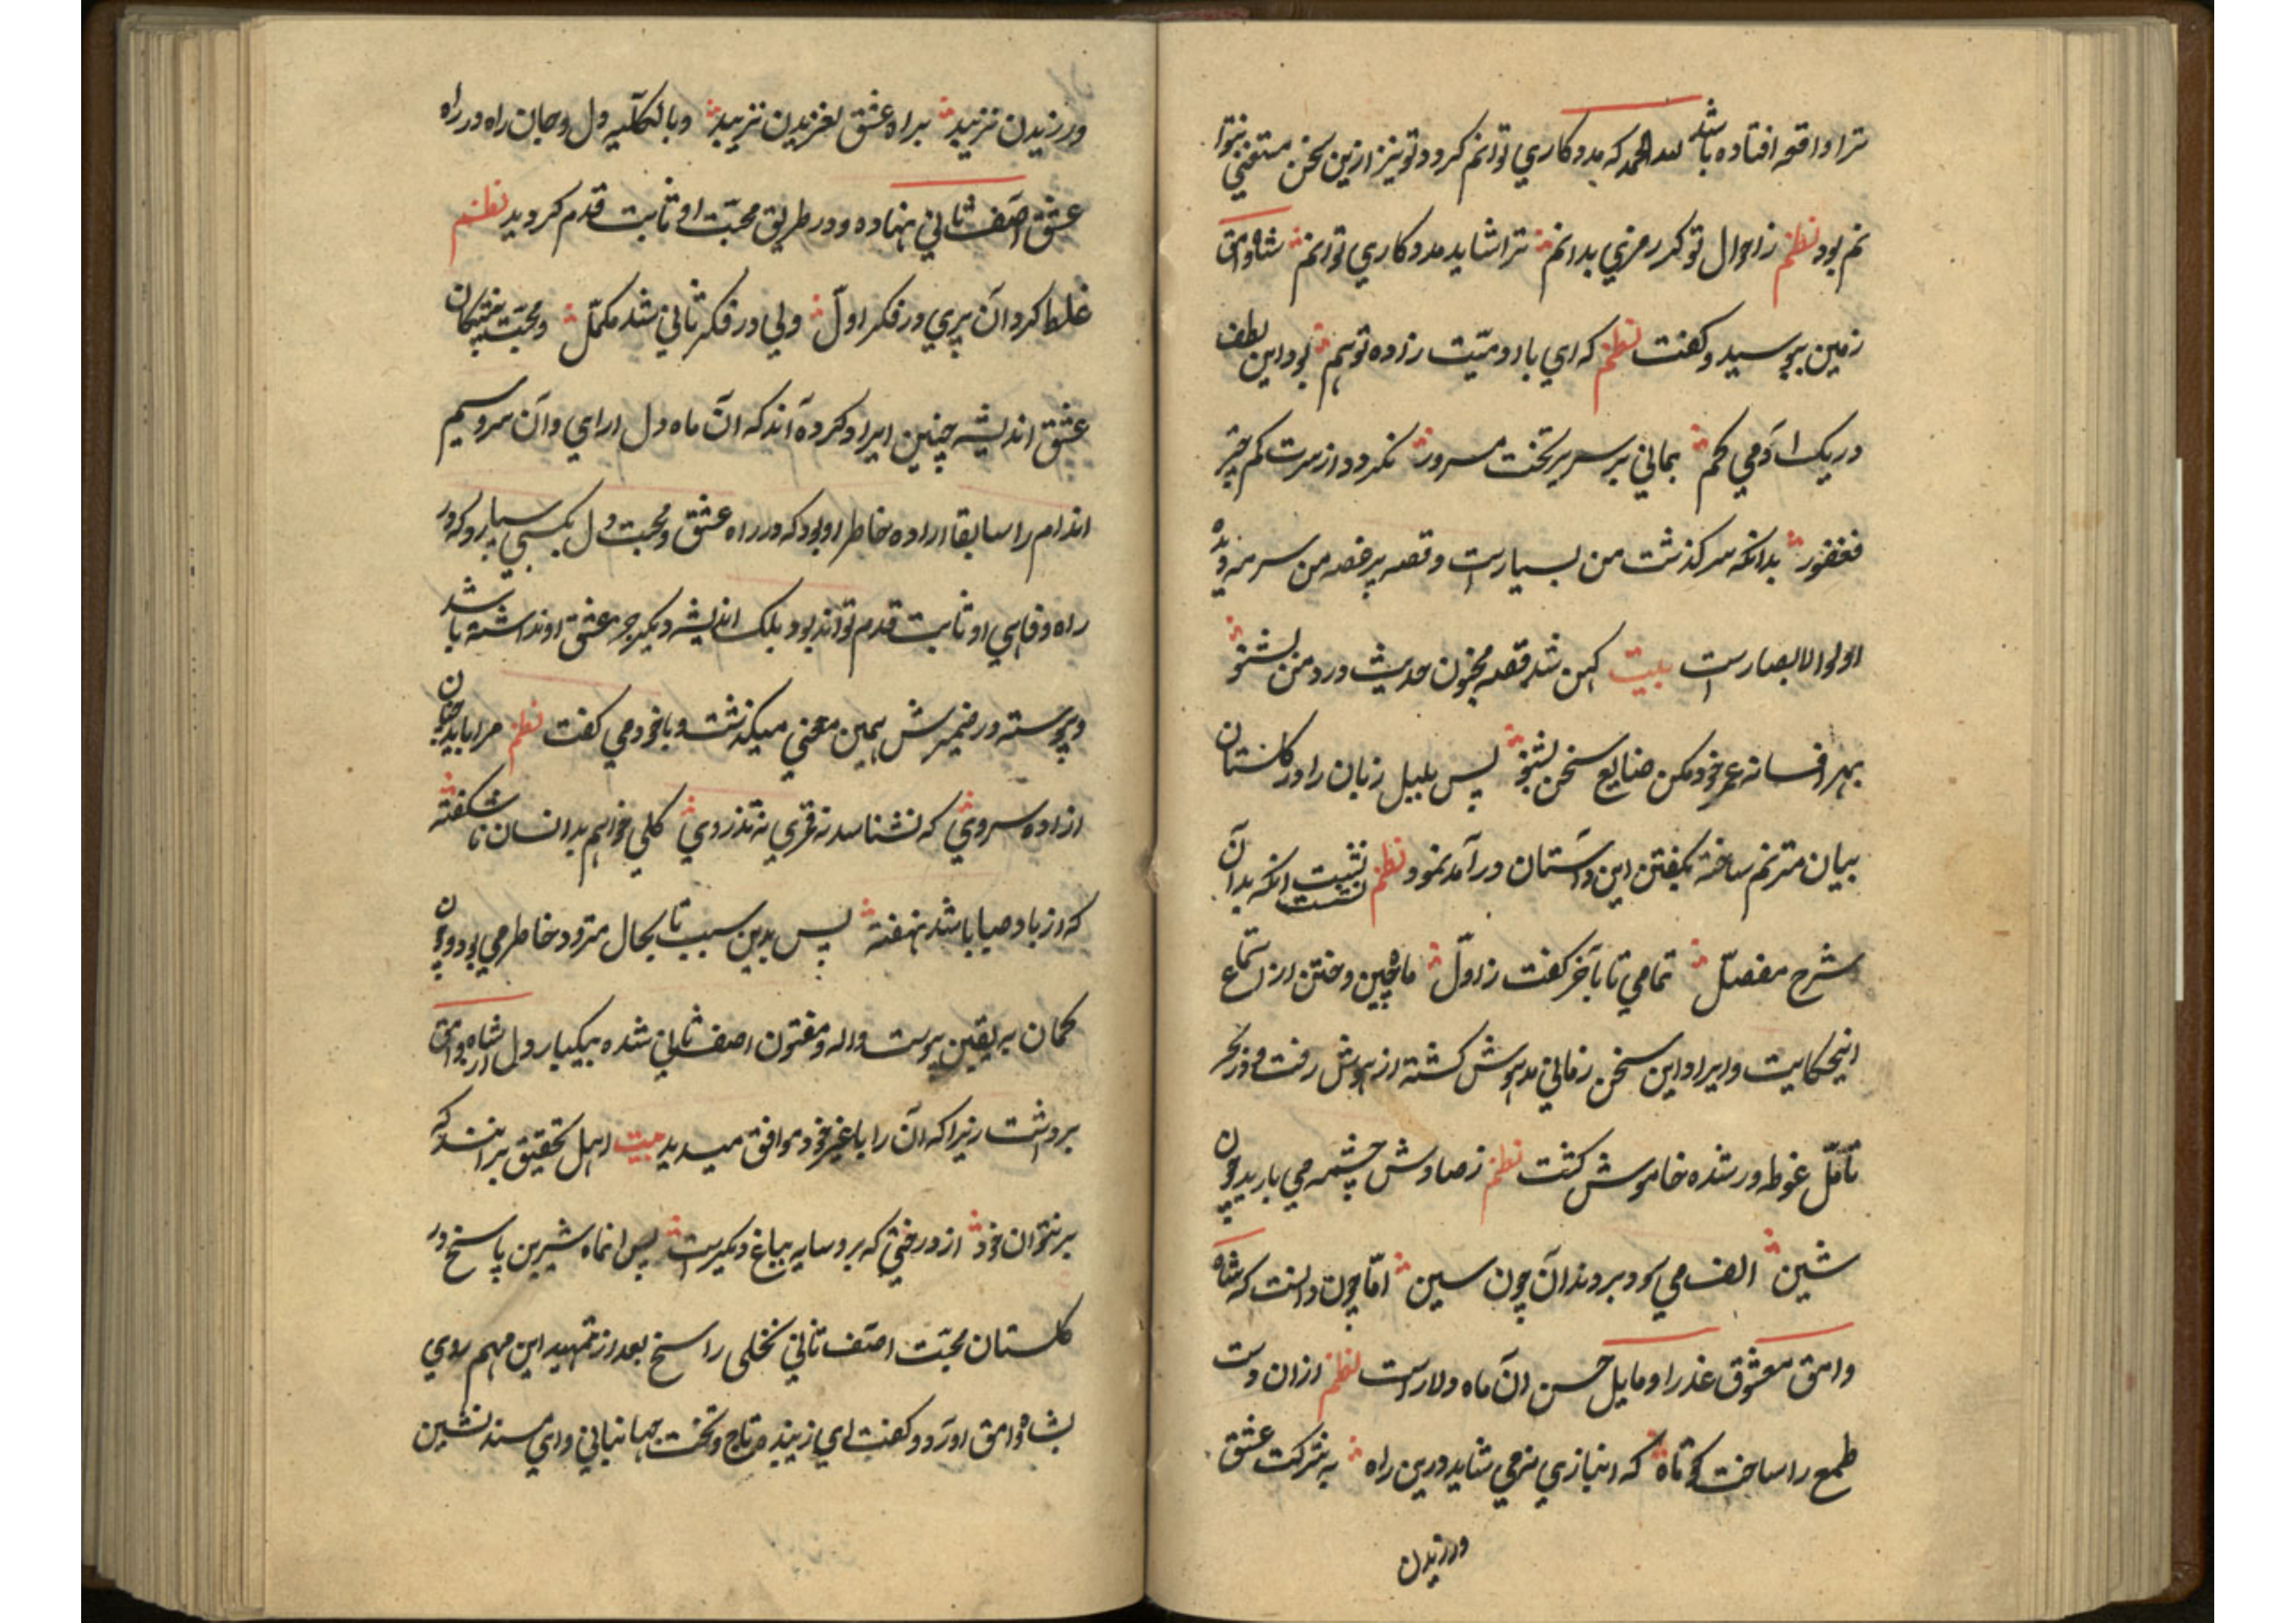 ترا واقعه افتاده باشد لله الحمد که مددکاری توانم کرد و تو نیز ازین سخن مستغنی نتوا
نم بود نظم ز احوال تو گر رمزی بدانم ترا شاید مددکاری توانم شاه وامق
زمین ببوسید و گفت نظم که ای با آدمیت زاده توهم بود این لطف
در یک آدمی کم بمانی بر سریر تخت مسرور نگردد از سرت کم چتر
فغفور بدانکه سرگذشت من بسیارست و قصه پر غصه من سرمه دیده
اولو الابصارست بیت کهن شد قصه مجنون حدیث درد من بشنو
بهر افسانه عمر خود مکن ضایع سخن بشنو پس بلبل زبان را در گلستان
بیان مترنم ساخته بگفتن این داستان درآمد نمود نظم نشست آنکه بدان
شرح مفصل تمامی تا بآخر گفت ز اول ماه چین و ختن از استماع
اینحکایت و ایراد این سخن زمانی مدهوش گشته از هوش رفت و در بحر
تأمل غوطه ور شده خاموش گشت نظم ز صادش چشمه می بارید چون
شین الف می سود بر دندان چون سین اما چون دانست که شاه
وامق معشوق عذرا و مایل حسن آن ماه دلاراست نظم ازان دست
طمع را ساخت کوتاه که انبازی نمی شاید درین راه به شرکت عشق
ورزیدن
ورزیدن نزیبد براه عشق لغزیدن نزیبد و بالکلیه دل و جان راه در راه
عشق آصف ثانی نهاده و در طریق محبت او ثابت قدم گردید نظم
غلط کرد آن پری در فکر اول ولی در فکر ثانی شد مکمل و محبت پیشگان
عشق اندیشه چنین ایراد کرده اند که آن ماه دل ارای و آن سرو سیم
اندام را سابقا اراده خاطر او بود که در راه عشق و محبت دل بکسی سپارد که در
راه وفای او ثابت قدم تواند بود بلک اندیشه دیگر جز عشق او نداشته باشد
و پیوسته در ضمیرش همین معنی میگذشت و با خود می گفت نظم مرا باید جوان
ازاده سروی که نشناسد نه قمری نه تذروی گلی خواهم بدانسان نا شکفته
که از باد صبا باشد نهفته پس بدین سبب تا بحال متردد خاطر می بود و چون
گمان به یقین پیوست واله و مفتون اصف ثانی شده بیکبار دل از شاه وامق
برداشت زیرا که آن را با غیر خود موافق میدید بیت اهل تحقیق برانند که
بر نتوان خورد از درختی که برو سایه بباغ دیگرست پس انماه شیرین پاسخ در
گلستان محبت اصف ثانی نخلی راسخ بعد از تمهید این مهم روی
بشاه وامق اورد و گفت ای زیبنده تاج و تخت جهانبانی و ای مسند نشین